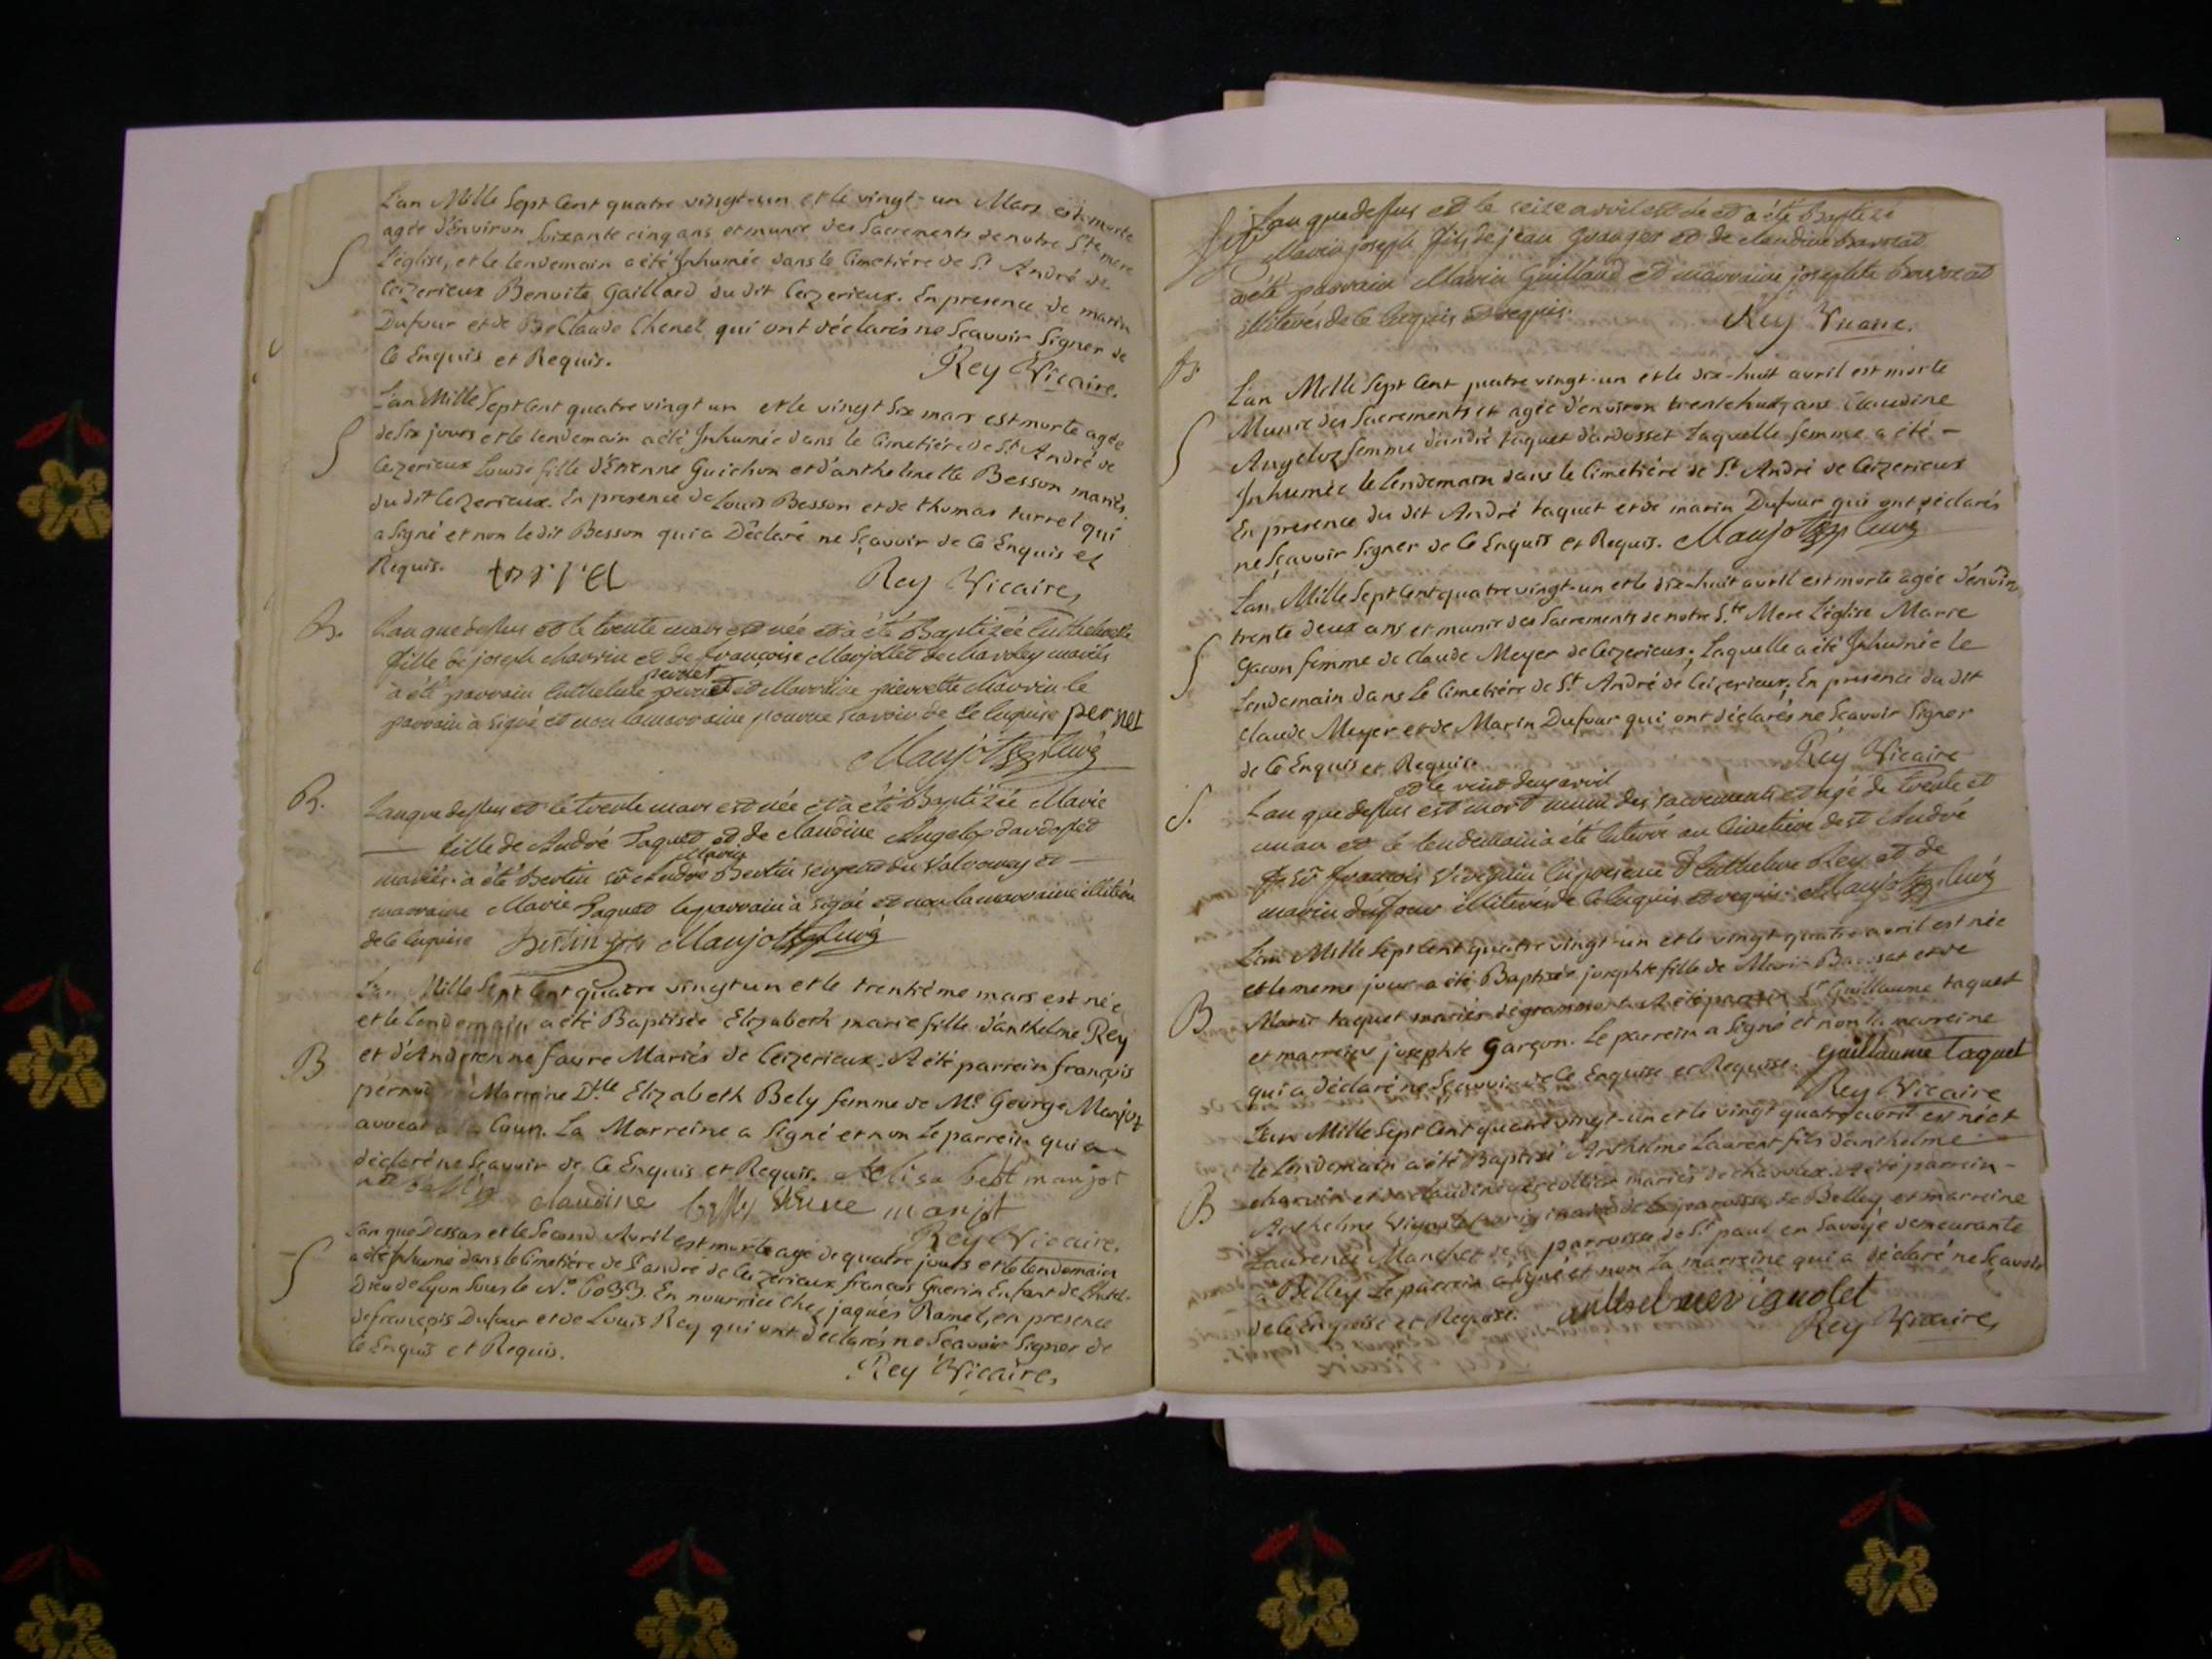 L'an Mille Sept Cent quatre vingt-un et le vingt-un Mars est morte
agée d'Environ Soixante cinq ans et munie des Sacrements de notre Ste mere
S L'église, et le lendemain a été Inhumée dans le Cimetiére de St. André de
Ceizerieux Benoite Gaillard du dit Ceizerieux. En presence de marin
Dufour et de Claude Chenel qui ont déclarés ne Scavoir Signer de
Ce Enquis et Requis. Rey Vicaire.
L'an Mille Sept Cent quatre vingt un et le vingt Six mars est morte agée
de Six jours et le lendemain a été Inhumée dans le Cimetiére de St. André de
S Ceizerieux Louise fille d'Etienne Guichon et d'anthelmette Besson mariés
du dit Ceizerieux. En presence de Louis Besson et de thomas turrel qui
a Signé et non le dit Besson qui a Déclaré ne Sçavoir de Ce Enquis et
Requis. Rey Vicaire,
B. L'an que dessus et le trente mars est née et a été Baptizée Enthelmette
fille de joseph Charvin et de françoise Marjollet de mariés
pernet
à été parrain Enthelme et Marraine pierrette Charvin le
parrain à signé et non la marraine pour ne scavoir de ce enquise pernet
Maujot curé
B. L'an que dessus et le trente mars est née et a été Baptizée Marie
fille de André Taquet et de Claudine Angeloz d'ardosset
mariés. à été Bertin sr Bertin sergent du Valromey et
marraine Marie Taquet le parrain à signé et non la marraine illiterée
de ce enquise Bertin Maujot curé
L'an Mille Sept Cent quatre vingt un et le trentiéme mars est née
et le lendemain a été Baptisée Elizabeth marie fille d'anthelme Rey
B et d'Andrienne favre Mariés de Ceizerieux. A été parrein françois
pernod Marreine Dlle Elizabeth Bely femme de Me George Marjot
avocat a la Cour. La Marreine a Signé et non Le parrein qui a
déclaré ne Scavoir de Ce Enquis et Requis. Elisabeth manjot
claudine manjot
Rey Vicaire.
L'an que Dessus et le Second Avril est morte agé de quatre jours et le lendemain
S a été Inhumé dans le Cimetiére de St andré de Ceizerieux françois Guerin Enfant de l'hotel-
Dieu de Lyon Sous le No. 6033. En nourrice chez jaques Ramel, en presence
de françois Dufour et de Louis Rey qui ont declarés ne Scavoir Signer de
Ce Enquis et Requis.
Rey Vicaire,
L'an que dessus et le seize avril est né et a été Baptizé
Marin joseph fils de jean Granger et de Claudine
a été parrain Marin Guilland et marraine josephte
illiterés de Ce Enquis et requis. Rey Vicaire.
L'an Mille Sept Cent quatre vingt-un et le dix-huit avril est morte
S Munie des Sacrements et agée d'environ trente huit ans Claudine
Angeloz femme d'andré taquet d'ardosset Laquelle femme a été -
Inhumée le lendemain dans le Cimetiére de St André de Ceizerieux
En presence du dit André taquet et de marin Dufour qui ont déclarés
ne Sçavoir Signer de Ce Enquis et Requis. Maujot curé
L'an Mille Sept Cent quatre vingt-un et le dix-huit avril est morte agée d'environ
trente deux ans et munie des Sacrements de notre Ste Mere L'église Marie
S Gacon femme de Claude Meyer de Ceizerieux; Laquelle a été Inhumée le
Lendemain dans Le Cimetiére de St André de Ceizerieux; En présence du dit
Claude Meyer et de Marin Dufour qui ont déclarés ne Scavoir Signer
de Ce Enquis et Requis. Rey Vicaire
et le vint deux avril
S. L'an que dessus est mort muni des sacrements et agé de trente et
un an et le lendemain a été enterré au Cimetiere de st André
sr françois en presence d'Enthelme Rey et de
marin dufour illiterés de Ce enquis et requis. Maujot curé
L'an Mille Sept Cent quatre vingt-un et le vingt-quatre avril est née
et le meme jour a été Baptisée josephte fille de Marin et de
B Marie taquet mariés de grammont. A été parrein Sr Guillaume taquet
et marreine josephte Garçon. Le parrein a Signé et non la marreine
qui a déclaré ne Sçavoir de Ce Enquise et Requise. guillaume Taquet
Rey Vicaire
L'an Mille Sept Cent quatre vingt-un et le vingt quatre avril est né et
le Lendemain a été Baptisé Anthelme Laurent fils d'anthelme
B charvin et de claudine mariés de chavolux. A été parrein -
Anthelme Vignolet originaire de la paroisse de Belley et marreine
Laurence Manchet de parroisse de St paul en Savoye demeurante
a Belley. Le parrein a Signé et non La marreine qui a déclaré ne Sçavoir
de Ce Enquise et Requise. anthelme vignolet
Rey Vicaire,